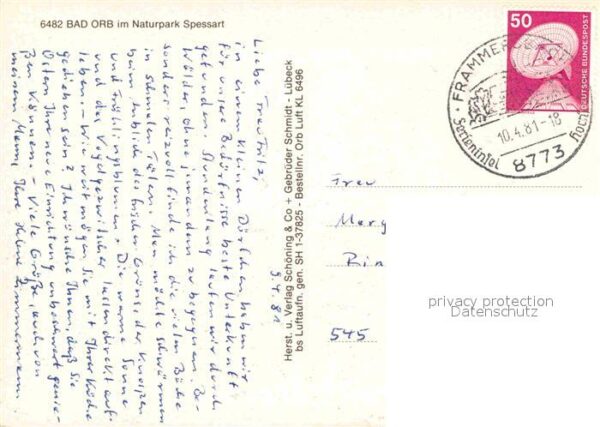 6482 BAD ORB im Naturpark Spessart
Liebe Frau Fritzi,
in einem kleinen Dörfchen haben wir
für unsere Bedürfnisse beste Unterkunft
gefunden. Stundenlang laufen wir durch
Wälder, ohne jemandem zu begegnen. Be-
sonders reizvoll finde ich die vielen Bäche
in schmalen Tälern. Man möchte schwärmen
beim Anblick des frischen Grüns, der Knospen
und Frühlingsblumen. Die warme Sonne
und das Vogelgezwitscher lassen direkt auf-
leben. – Wie weit mögen Sie mit Ihrer Küche
gediehen sein? Ich wünsche Ihnen, daß Sie
Ostern Ihre neue Einrichtung unbeschwert genie-
ßen können. – Viele Grüße, auch von
meinem Mann, Ihre Helene Zimmermann
9.4.81
Herst. u. Verlag Schöning & Co + Gebrüder Schmidt - Lübeck
bs Luftaufn. gen. SH 1-37825 - Bestellnr. Orb Luft KL 6496
50
DEUTSCHE BUNDESPOST
FRAMMERS
10.4.81-18
Ferieninsel
8773
Frau
Marg
Rin
545
privacy protection
Datenschutz